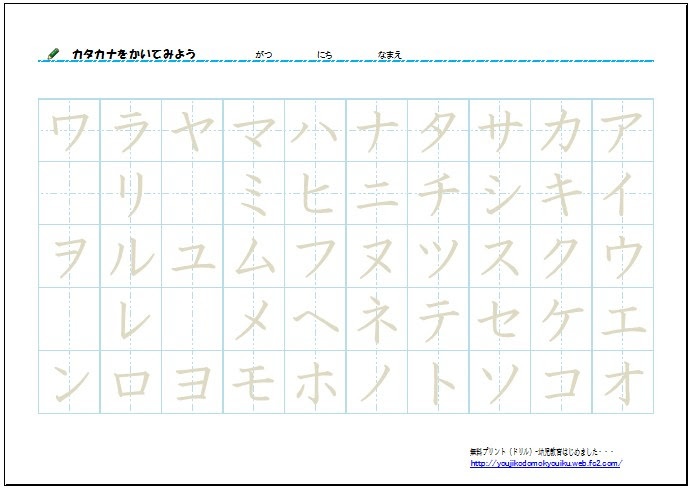 カタカナをかいてみよう　がつ　にち　なまえ
ワ ラ ヤ マ ハ ナ タ サ カ ア
リ ミ ヒ ニ チ シ キ イ
ヲ ル ユ ム フ ヌ ツ ス ク ウ
レ メ ヘ ネ テ セ ケ エ
ン ロ ヨ モ ホ ノ ト ソ コ オ
無料プリント（ドリル）-幼児教育はじめました・・・
http://youjikodomokyouiku.web.fc2.com/